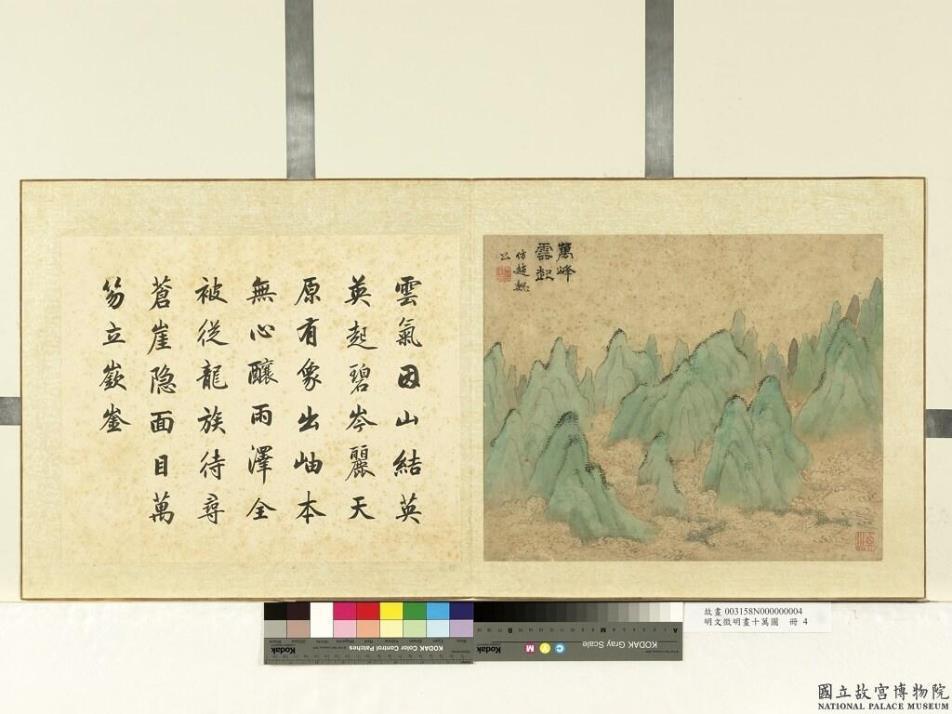 萬峰
雲起
仿趙魏
公
雲氣因山結英
英起碧岑麗天
原有象出岫本
無心釀雨澤全
被從龍族待尋
蒼崖隐面目萬
笏立嶔崟
Kodak
KODAK Color Control Patches
Kodak
C Y M
KODAK Gray Scale
A
故畫 003158N000000004
明文徵明畫十萬圖 冊 4
國立故宮博物院
NATIONAL PALACE MUSEUM